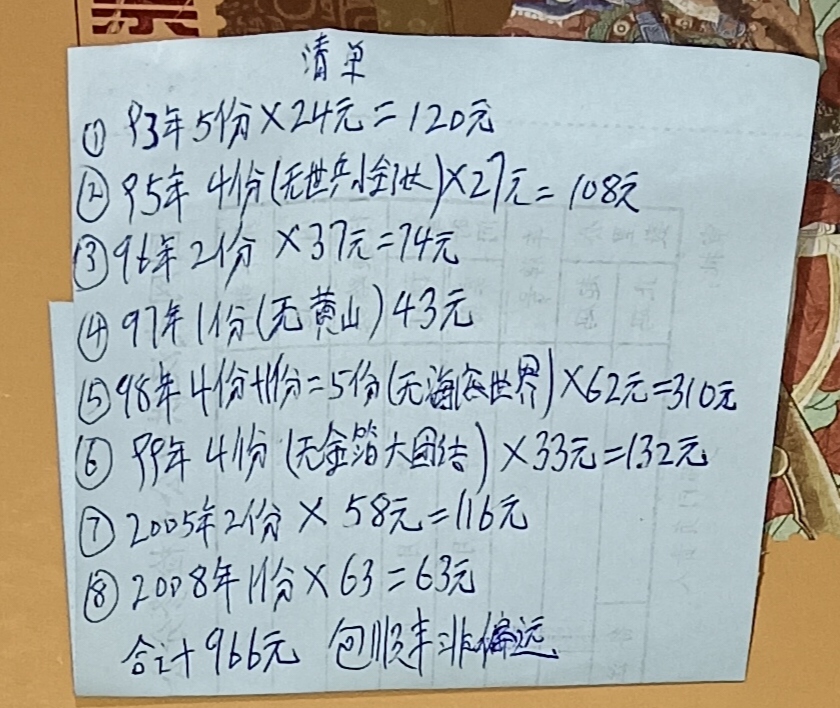 清单
① 93年5份×24元=120元
② 95年4份(无世乒小金世)×27元=108元
③ 96年2份×37元=74元
④ 97年1份(无黄山)43元
⑤ 98年4份+1份=5份(无海底世界)×62元=310元
⑥ 99年4份(无金箔大团结)×33元=132元
⑦ 2005年2份×58元=116元
⑧ 2008年1份×63=63元
合计966元 包顺丰非偏远